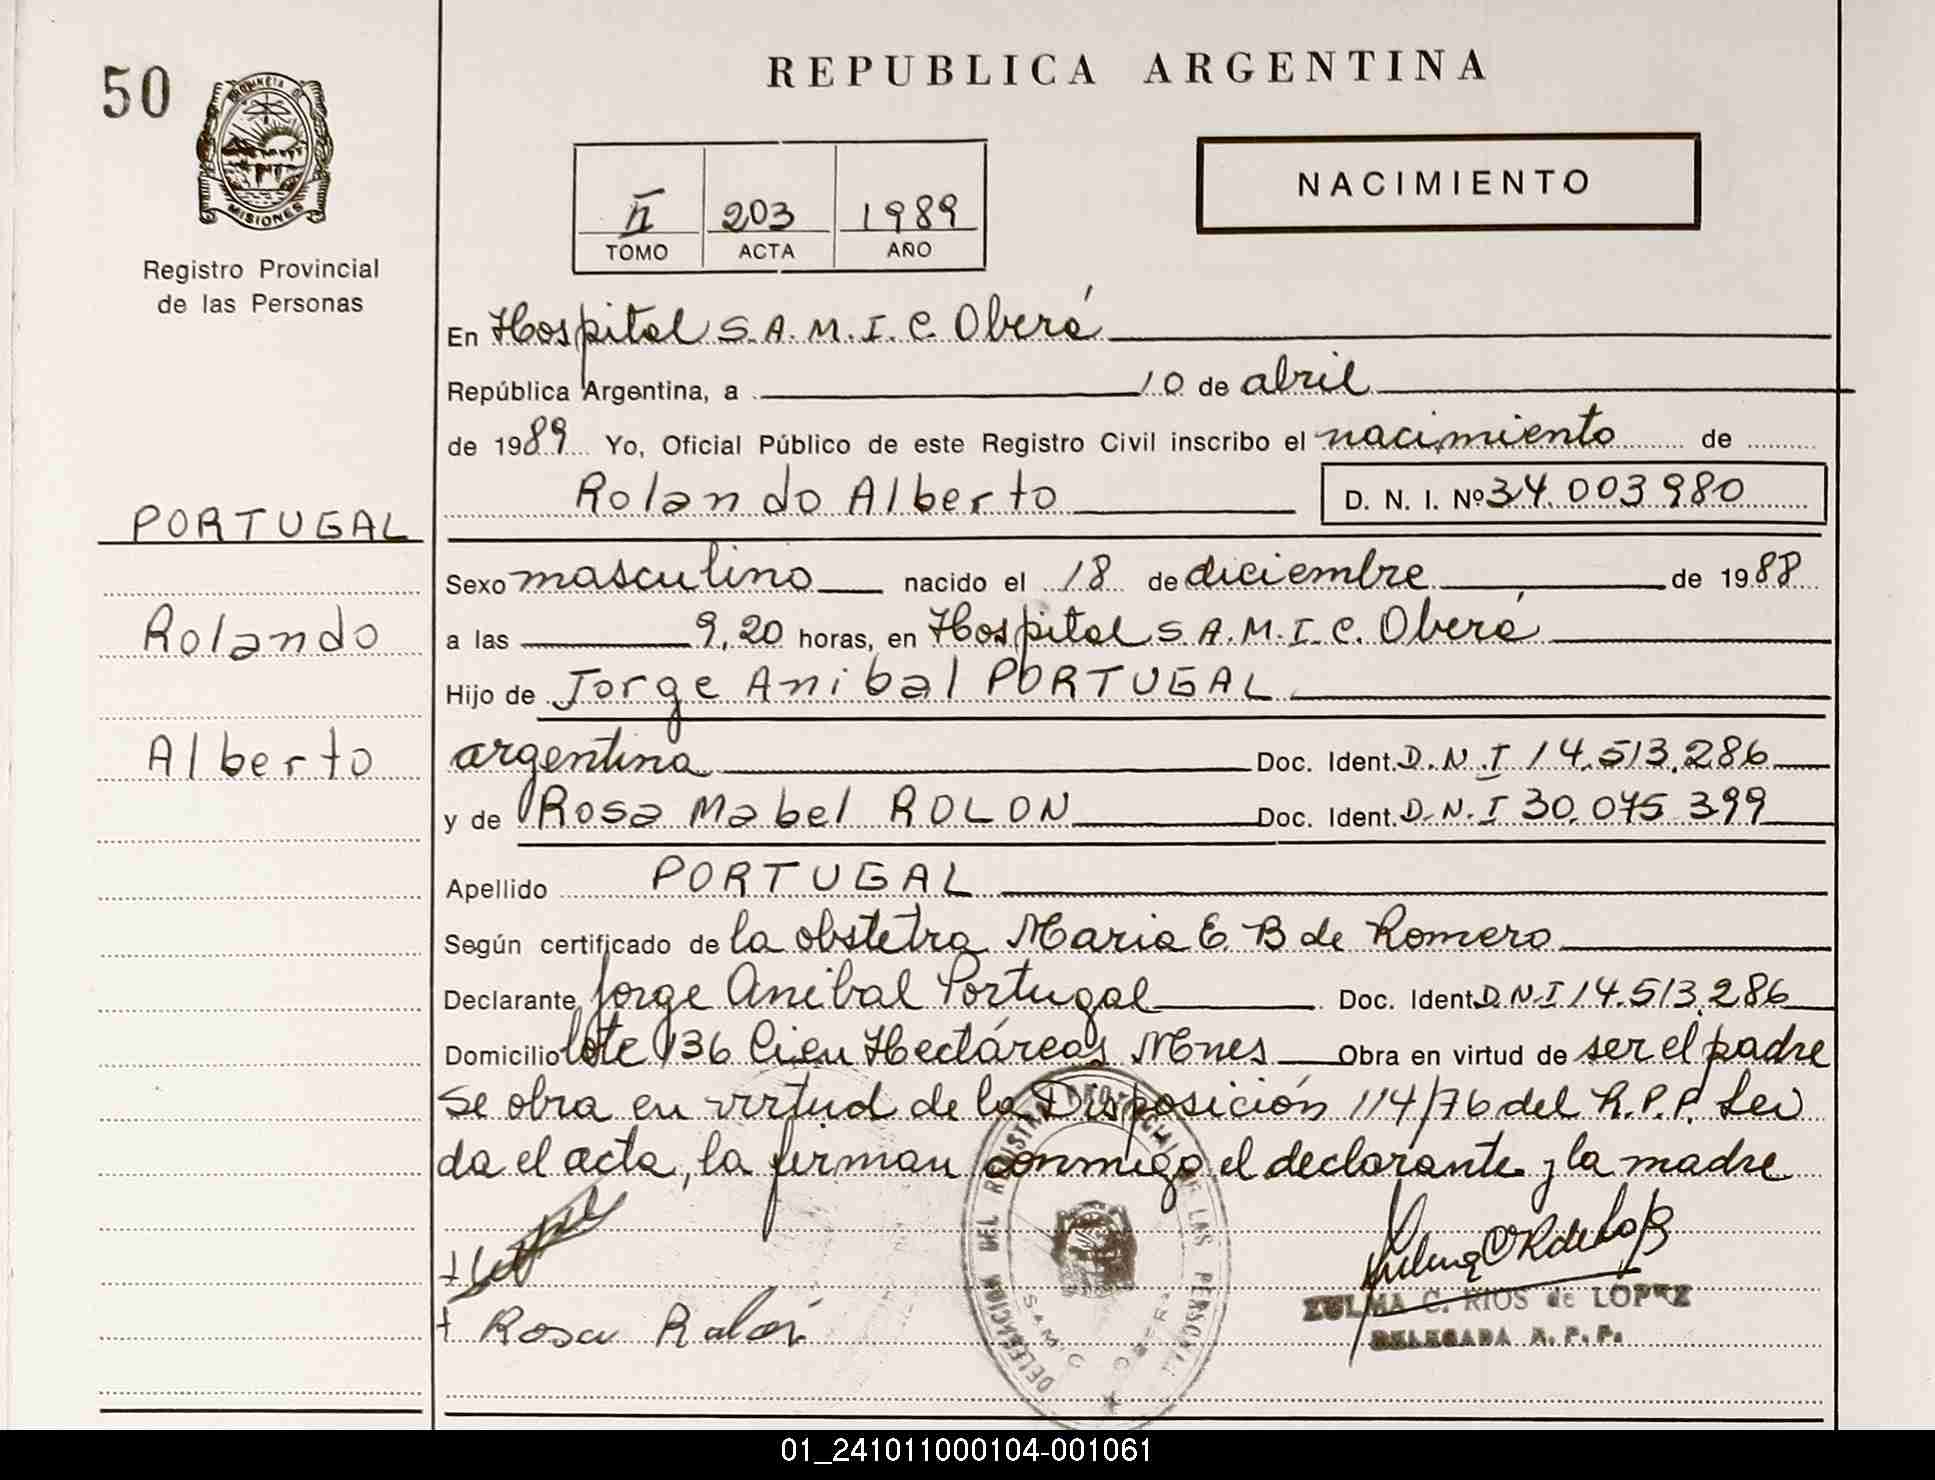 50
PROVINCIA DE
MISIONES
Registro Provincial
de las Personas
REPUBLICA ARGENTINA
II 203 1989
TOMO ACTA AÑO
NACIMIENTO
En Hospital S.A.M.I.C. Oberá
República Argentina, a 10 de abril
de 1989 Yo, Oficial Público de este Registro Civil inscribo el nacimiento de
Rolando Alberto D. N. I. Nº 34.003980
PORTUGAL
Sexo masculino nacido el 18 de diciembre de 1988
Rolando
a las 9,20 horas, en Hospital S.A.M.I.C. Oberá
Hijo de Jorge Anibal PORTUGAL
Alberto
argentina Doc. Ident. D.N.I 14.513.286
y de Rosa Mabel ROLON Doc. Ident. D.N.I 30.075.399
Apellido PORTUGAL
Según certificado de la obstetra Maria E. B de Romero
Declarante Jorge Anibal Portugal Doc. Ident D.N.I 14.513.286
Domicilio lote 136 Cien Hectáreas Mnes Obra en virtud de ser el padre
Se obra en virtud de la Disposición 114/76 del R.P.P. Lei
da el acta, la firman conmigo el declarante y la madre
DELEGACION DEL REGISTRO PROVINCIAL DE LAS PERSONAS
SAMIC OBERA
+ Rosa Rolón
ZULMA C. RIOS de LOPEZ
DELEGADA R. P. P.
01_241011000104-001061